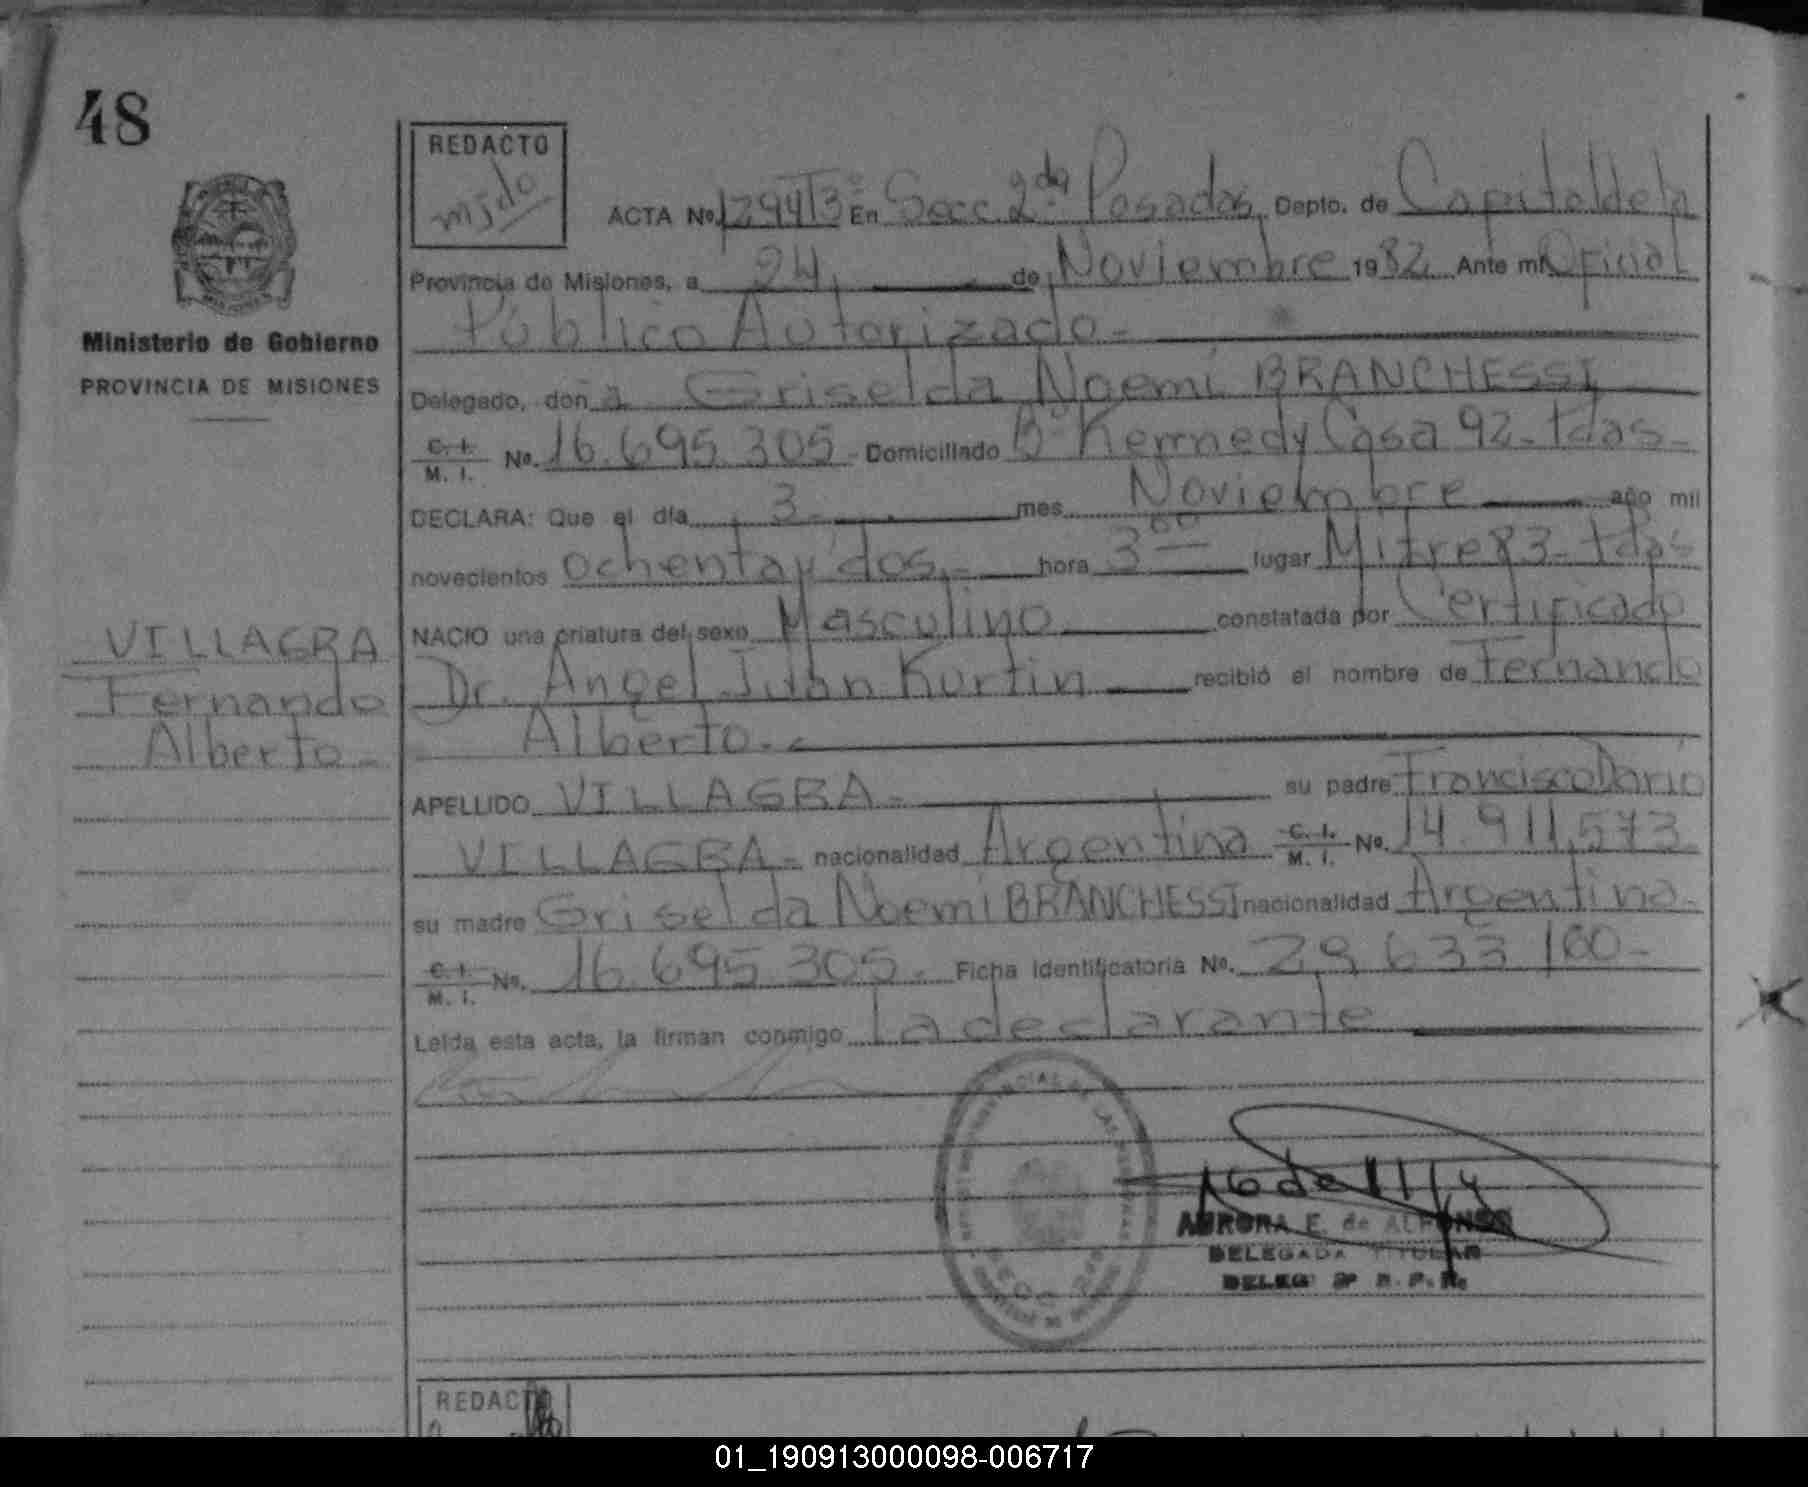 48
REDACTO
ACTA No. 1294T3º En Secc 2da Posadas, Depto. de Capital de la
Provincia de Misiones, a 24 de Noviembre 1982 Ante mí Oficial
Público Autorizado.-
Ministerio de Gobierno
PROVINCIA DE MISIONES
Delegado, doña Griselda Noemi BRANCHESSI
C. I. M. I. No. 16.695.305 - Domiciliado Bº Kennedy Casa 92 - Pdas -
DECLARA: Que el día 3 mes Noviembre año mil
novecientos ochenta y dos.- hora 3 00 lugar Mitre 83 - Pdas
NACIO una criatura del sexo Masculino constatada por Certificado
Dr. Angel Juan Kurtin recibió el nombre de Fernando
Alberto.-
VILLAGRA
Fernando
Alberto.-
APELLIDO VILLAGRA - su padre Francisco Dario
VILLAGRA - nacionalidad Argentina C. I. M. I. No. 14.911.573-
su madre Griselda Noemi BRANCHESSI nacionalidad Argentina -
C. I. M. I. No. 16.695.305.- Ficha Identificatoria No. 29 633 160-
Leída esta acta, la firman conmigo la declarante
AURORA E. de ALFONSO
DELEGADA TITULAR
REDACTO
01_190913000098-006717